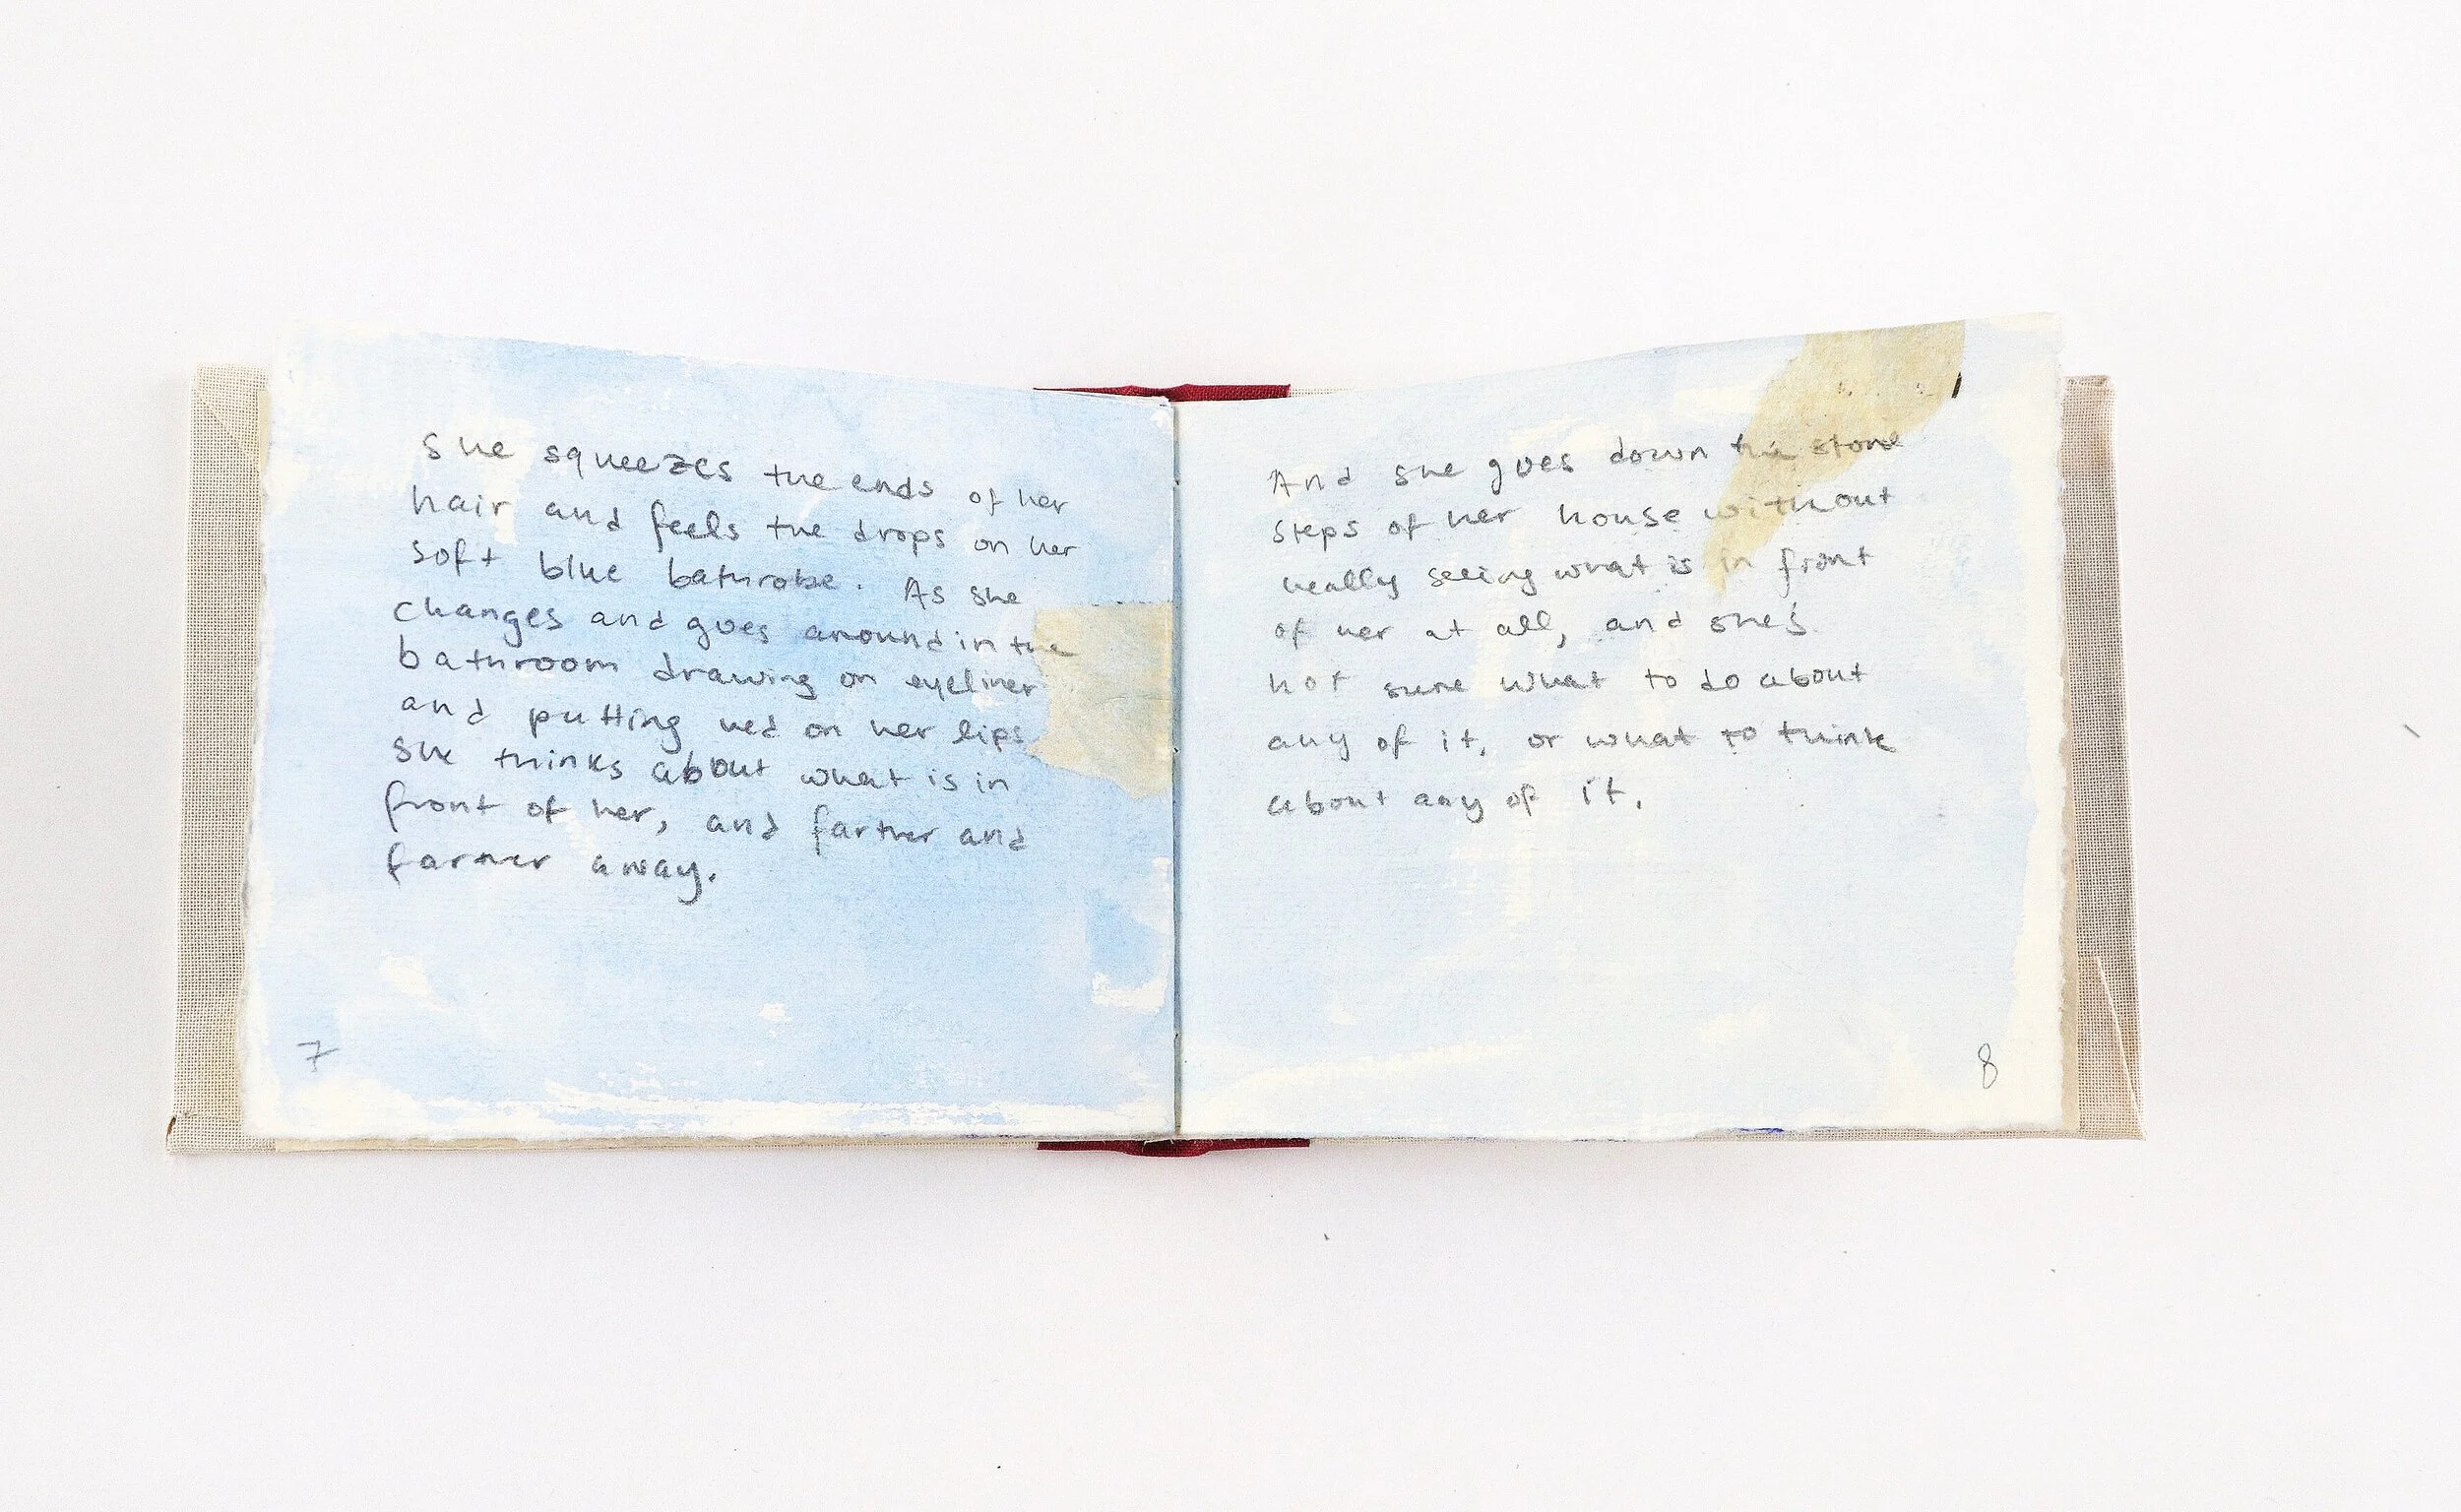 She squeezes the ends of her
hair and feels the drops on her
soft blue bathrobe. As she
changes and goes around in the
bathroom drawing on eyeliner
and putting red on her lips
she thinks about what is in
front of her, and farther and
farther away.
7
And she goes down the stone
steps of her house without
really seeing what is in front
of her at all, and she's
not sure what to do about
any of it, or what to think
about any of it.
8